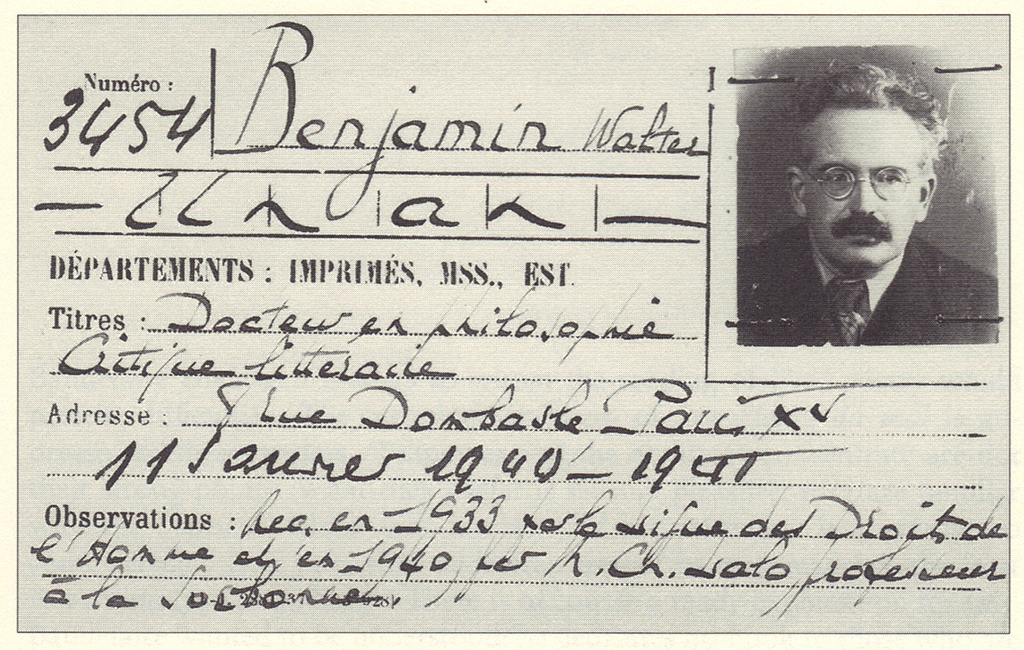 Numéro :
3454 Benjamin Walter
— Un | a | n | —
DÉPARTEMENTS : IMPRIMÉS, MSS., EST.
Titres : Docteur en philosophie
Critique littéraire
Adresse : rue Dombasle Paris XV
11 Janvier 1940 – 1941
Observations : Rec. en 1933 par la Ligue des Droits de
l'Homme et en 1940, par M. Ch. Lalo professeur
à la Sorbonne